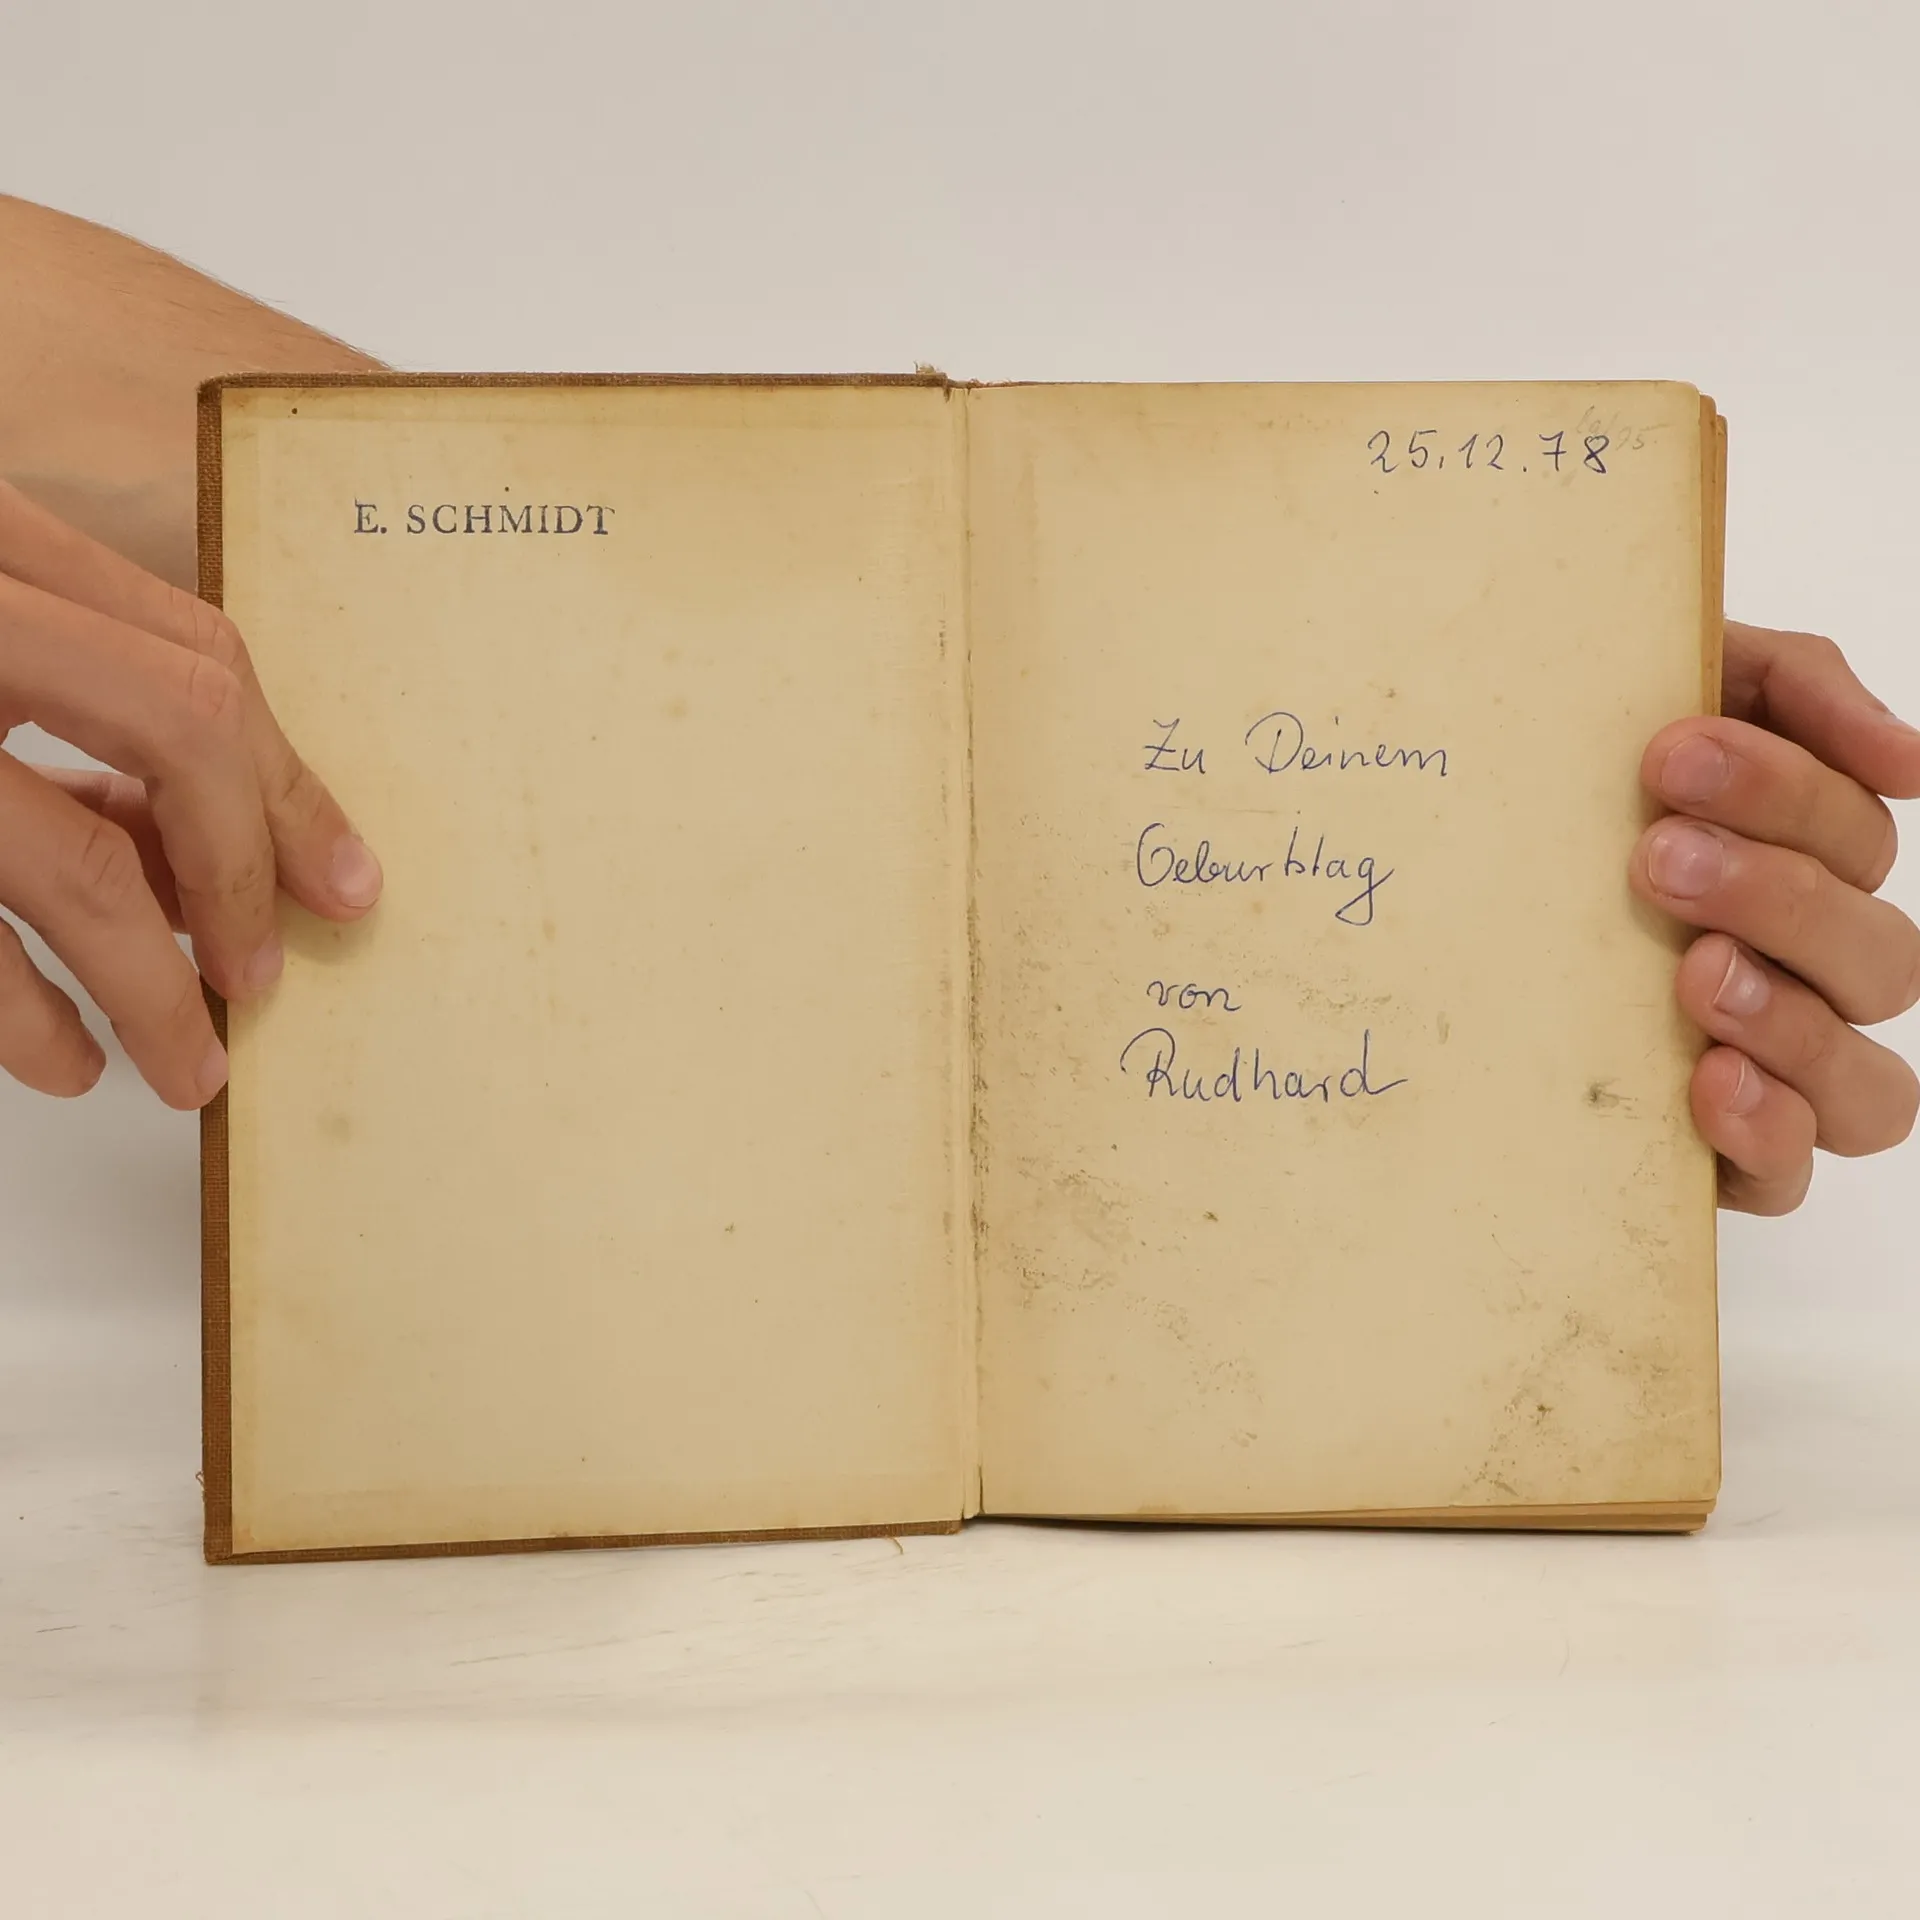 E. SCHMIDT
25.12.78
Zu Deinem
Geburtstag
von
Rudhard